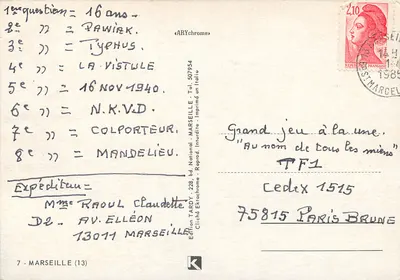 1ère question = 16 ans.
2e " = PAWIAK.
3e " = TYPHUS.
4e " = LA VISTULE
5e " = 16 NOV. 1940.
6e " = N.K.V.D.
7e " = COLPORTEUR.
8e " = MANDELIEU.
Expéditeur =
Mme RAOUL Claudette
D2 - AV. ELLÉON
13011 MARSEILLE
7 - MARSEILLE (13)
«ARYchrome»
Edition TARDY - 228, bd. National - MARSEILLE - Tél. 507954
Cliché Ektachrome - Reprod. Interdite - Imprimé en Italie
K
2,10
1985
ST MARCEL
Grand jeu à la une.
"Au nom de tous les miens"
TF1
Cedex 1515
75815 PARIS BRUNE